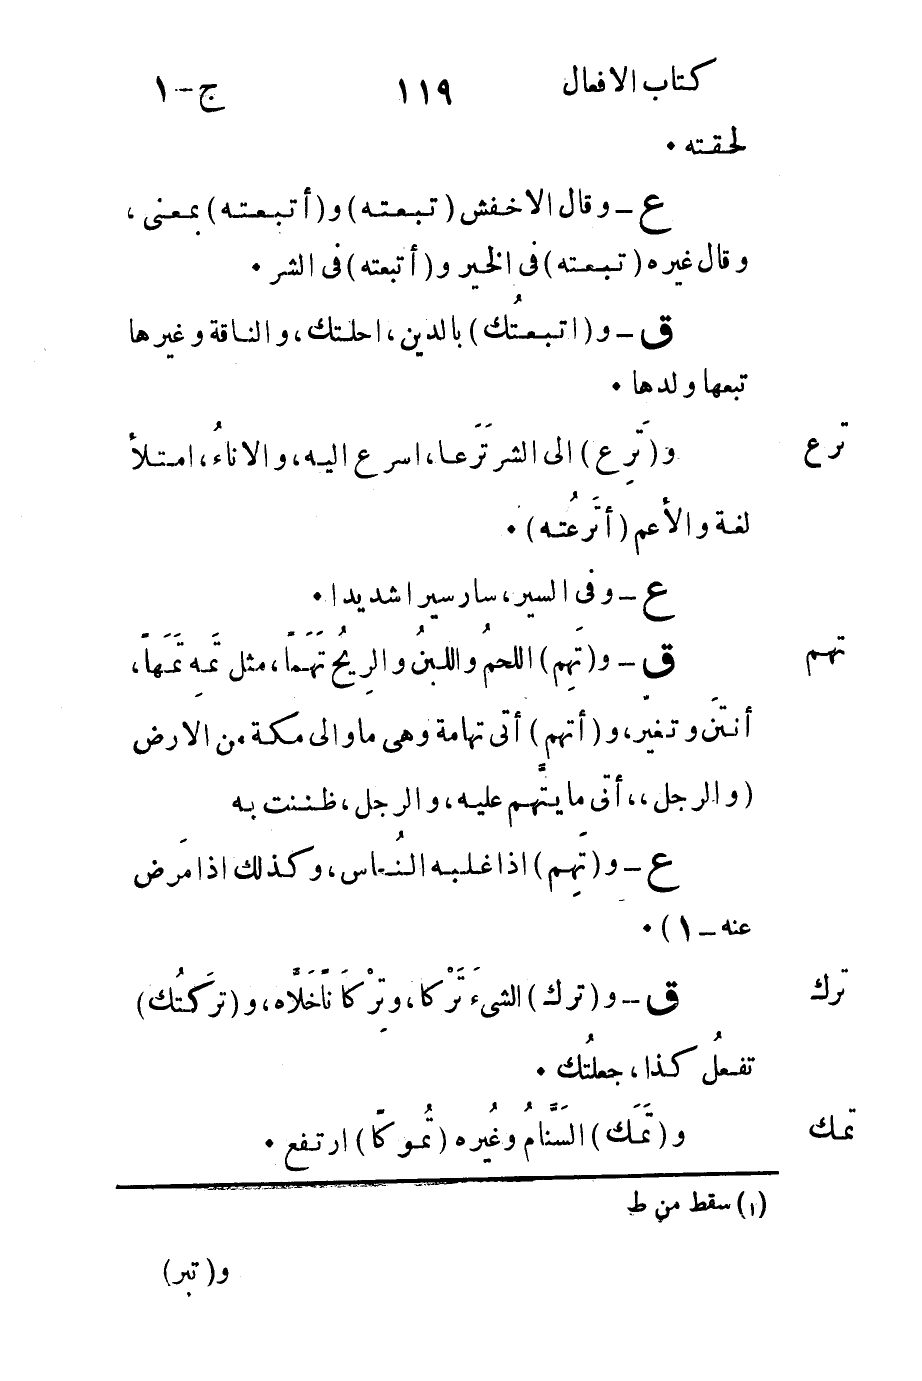 كتاب الافعال ١١٩ ج-١
لحقته ۰
ع – وقال الاخفش (تبعته) و(أتبعته) بمعنى ،
وقال غيره (تبعته) فى الخير و(أتبعته) فى الشر ۰
ق – و(اتبعتُك) بالدين، احلتك، والناقة وغيرها
تبعها ولدها ۰
ترع و(تَرِع) الى الشر تَرَعا، اسرع اليه، والاناءُ، امتلأ
لغة والأعم (أتَرعُته) ۰
ع – وفى السير، سار سيرا شديدا ۰
تهم ق – و(تَهِم) اللحمُ واللبنُ والرِيحُ تَهَمَاً، مثل تَمِه تَمَهَاً،
أنتَنَ وتغيّر، و(أتهم) أتى تهامة وهى ماوالى مكة من الارض
(والرجل،، أتى ما يتَّهم عليه، والرجل، ظننت به
ع – و(تَهِم) اذا غلبه النُعاس، وكذلك اذا مَرض
عنه – ١) ۰
ترك ق – و(ترك) الشىءَ تَرْكا، وتِرْكاَناً خَلاَّه، و(تركتُك)
تفعلُ كذا، جعلتُك ۰
تمك و(تَمَك) السَّنَامُ وغُيره (تُموكاً) ارتفع ۰
(١) سقط من ط
و(تبر)